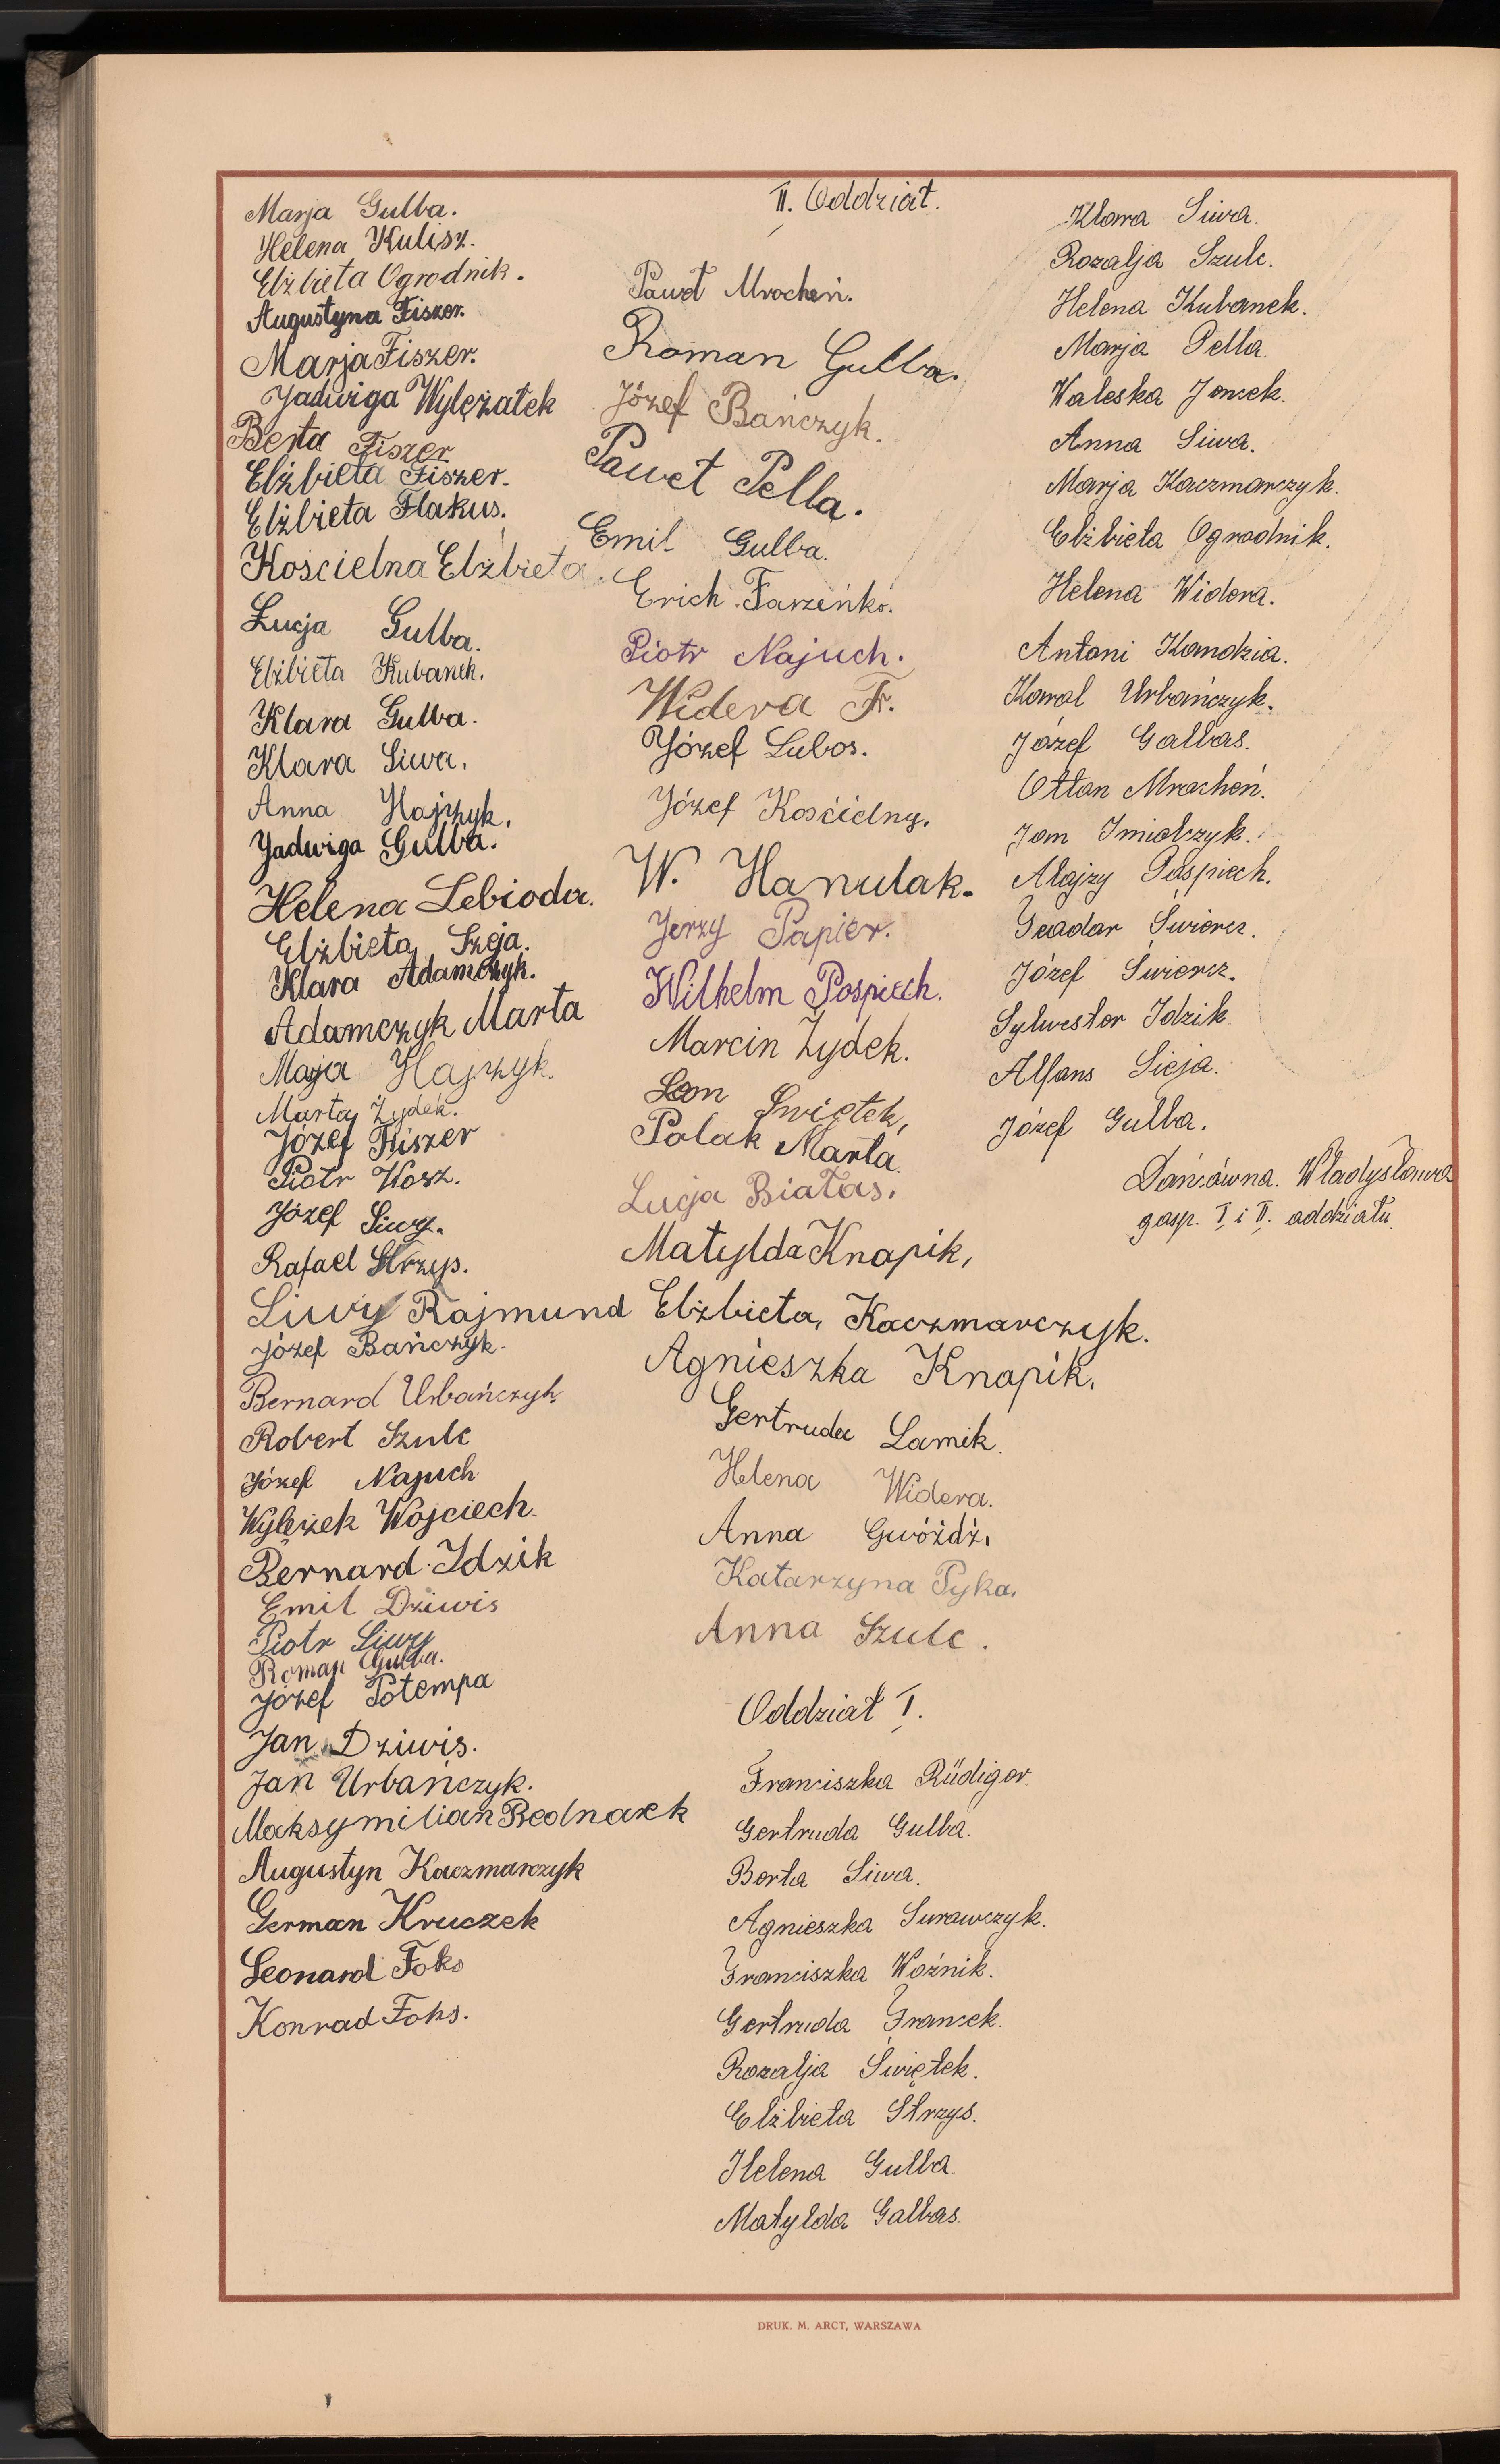 Marja Gulba.
Helena Kulisz.
Elżbieta Ogrodnik.
Augustyna Fiszer.
Marja Fiszer.
Jadwiga Wylężałek
Berta Fiszer
Elżbieta Fiszer.
Elżbieta Flakus.
Kościelna Elżbieta.
Łucja Gulba.
Elżbieta Kubanek.
Klara Gulba.
Klara Siwa.
Anna Hajzyk.
Jadwiga Gulba.
Helena Lebioda.
Elżbieta Szeja.
Klara Adamczyk.
Adamczyk Marta
Marja Hajzyk.
Marta Żydek.
Józef Fiszer
Piotr Wosz.
Józef Siwy.
Rafael Strzys.
Siwy Rajmund
Józef Bańczyk.
Bernard Urbańczyk
Robert Szulc
Józef Najuch
Wylężek Wojciech.
Bernard Idzik
Emil Dziwis
Piotr Siwy
Roman Gulba.
Józef Potempa
Jan Dziwis.
Jan Urbańczyk.
Maksymilian Bednarek
Augustyn Kaczmarczyk
German Kruczek
Leonard Foks
Konrad Foks.
II. Oddział.
Paweł Mrocheń.
Roman Gulba.
Józef Bańczyk.
Paweł Pella.
Emil Gulba.
Erich Farzeńko.
Piotr Najuch.
Widera Fr.
Józef Lubos.
Józef Kościelny.
W. Hanulak.
Jerzy Papier.
Wilhelm Pospiech.
Marcin Żydek.
Leon Świętek,
Polak Marta.
Łucja Białas.
Matylda Knapik,
Elżbieta, Kaczmarczyk.
Agnieszka Knapik.
Gertruda Lamik.
Helena Widera.
Anna Gwóźdź.
Katarzyna Pyka.
Anna Szulc.
Oddział I.
Franciszka Rüdiger.
Gertruda Gulba.
Berta Siwa.
Agnieszka Surawczyk.
Franciszka Woźnik.
Gertruda Francek.
Rozalja Świętek.
Elżbieta Strzys.
Helena Gulba.
Matylda Galbas.
Klara Siwa.
Rozalja Szulc.
Helena Kubanek.
Marja Pella.
Waleska Joncek.
Anna Siwa.
Marja Kaczmarczyk.
Elżbieta Ogrodnik.
Helena Widera.
Antoni Komdzia.
Karol Urbańczyk.
Józef Galbas.
Otton Mrocheń.
Jan Imiolczyk.
Alojzy Pospiech.
Teodor Świercz.
Józef Świercz.
Sylwester Idzik.
Alfons Sieja.
Józef Gulba.
Dańcówna. Władysława
gosp. I i II. oddziału.
DRUK. M. ARCT, WARSZAWA